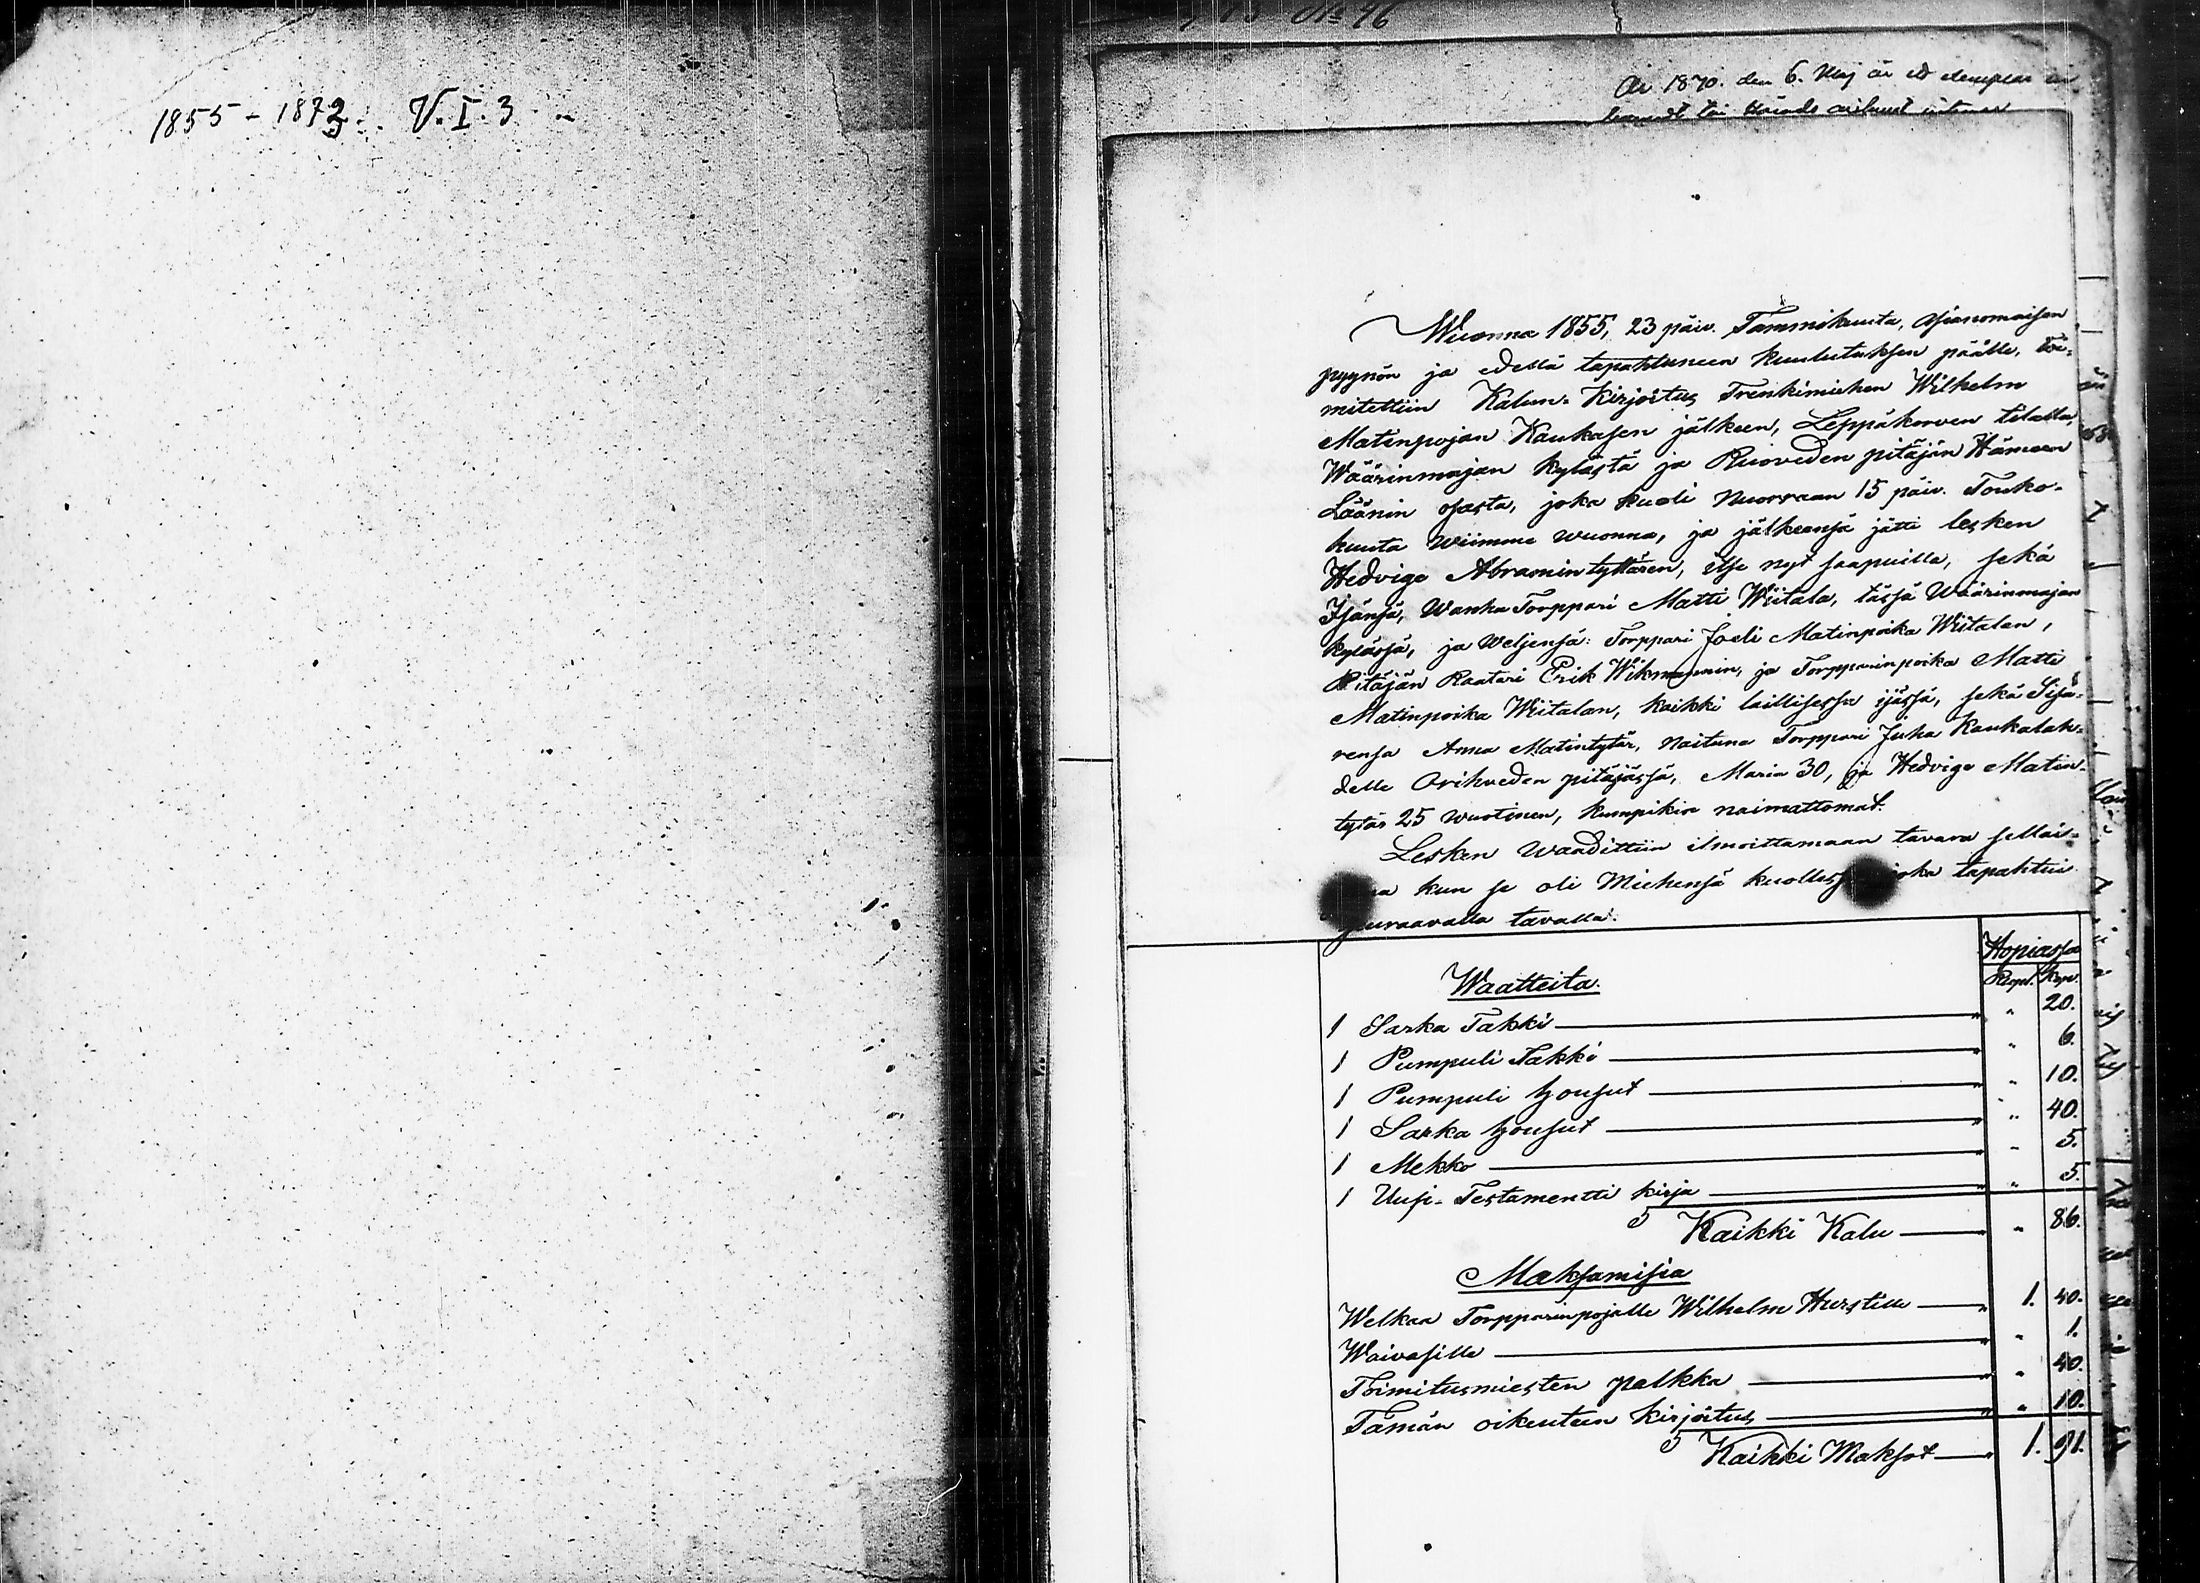 1855 - 1873. V. I. 3
No 46
År 1870. den 6. Maj är ett exemplar
Wuonna 1855, 23 päiv. Tammikuuta, Asianomaisen
pyynön ja edellä tapahtuneen kuulutuksen päälle, toi-
mitettiin Kalun-Kirjoitus Trenkimiehen Wilhelm
Matinpojan Kaukasen jälkeen, Leppäkorven tilalla,
Wäärinmajan kylästä ja Ruoveden pitäjän Hämeen
Läänin osasta, joka kuoli Nuorraan 15 päiv. Touko-
kuuta wiimme wuonna, ja jälkeensä jätti lesken
Hedvige Abramintyttären, itse nyt saapuilla, sekä
Isänsä, Wanha Torppari Matti Wiitala, tässä Wäärinmajan
kylässä, ja Weljensä: Torppari Joeli Matinpoika Wiitalan,
Pitäjän Raatari Erik Wikmannin, ja Torpparinpoika Matti
Matinpoika Wiitalan, kaikki laillisessa ijässä, sekä Sisa-
rensa Anna Matintytär, naituna Torppari Juha Kaukalah-
delle Orihveden pitäjässä, Maria 30, ja Hedvige Matin-
tytär 25 wuotinen, kumpikin naimattomat.
Lesken waadittiin ilmoittamaan tavara sellais-
na kun se oli Miehensä kuollessa joka tapahtui
seuraavalla tavalla:
Hopiassa
Rupl. Kope.
Waatteita.
1 Sarka Takki " 20.
1 Pumpuli Takki " 6.
1 Pumpuli housut " 10.
1 Sarka housut " 40.
1 Mekko " 5.
1 Uusi-Testamentti kirja " 5.
Kaikki Kalu " 86.
Maksamisia
Welkaa Torpparinpojalle Wilhelm Hurstille 1. 40.
Waivasille " 1.
Toimitusmiesten palkka " 40.
Tämän oikeuteen kirjoitus " 10.
Kaikki Maksot 1. 91.